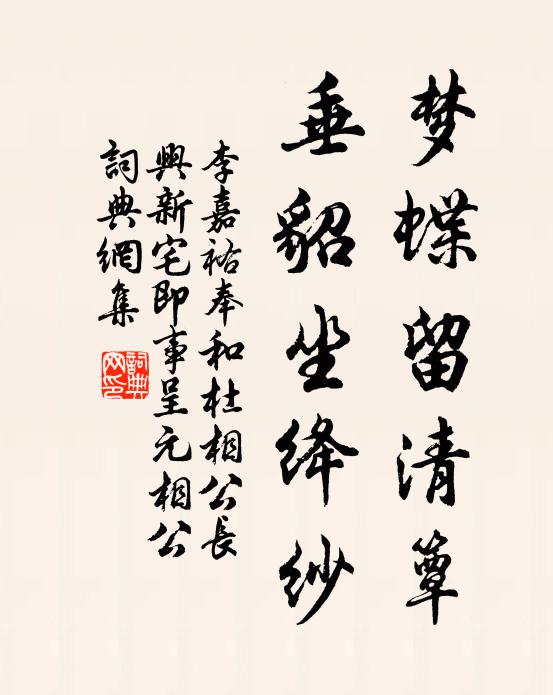 梦蝶留清簟
垂貂坐绛纱
李嘉祐奉和杜相公長
興新宅即事呈元相公
詞典網集
詞典网印